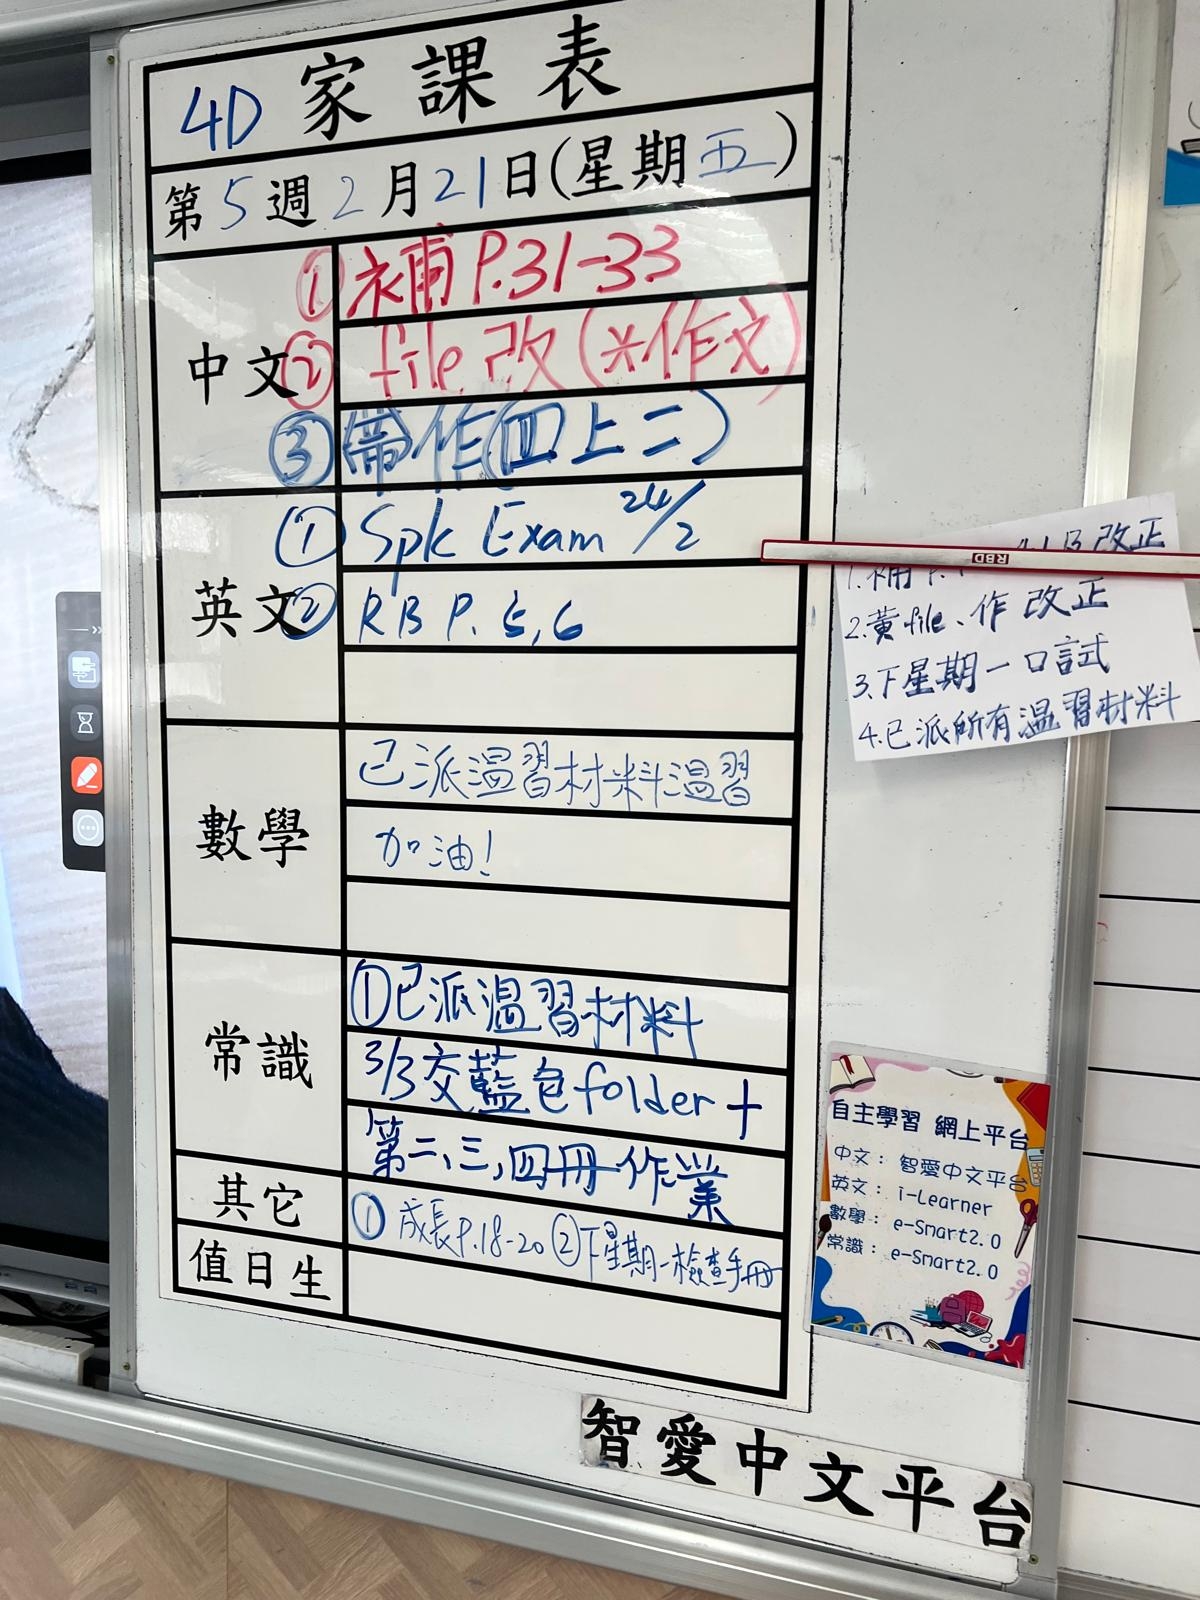 4D 家課表
第5週2月21日(星期五)
中文
① 補 P.31-33
② file 改 (*作文)
③ 帶作(四上二)
英文
① Spk Exam 24/2
② RB P. 5,6
數學
已派溫習材料溫習
加油!
常識
①已派溫習材料
3/3交藍色folder+
第二、三、四冊作業
其它
① 成長P.18-20 ②下星期一檢查手冊
值日生
1.補
改正
2.黃file、作 改正
3.下星期一口試
4.已派所有溫習材料
RBD
自主學習 網上平台
中文: 智愛中文平台
英文: i-Learner
數學: e-Smart2.0
常識: e-Smart2.0
智愛中文平台